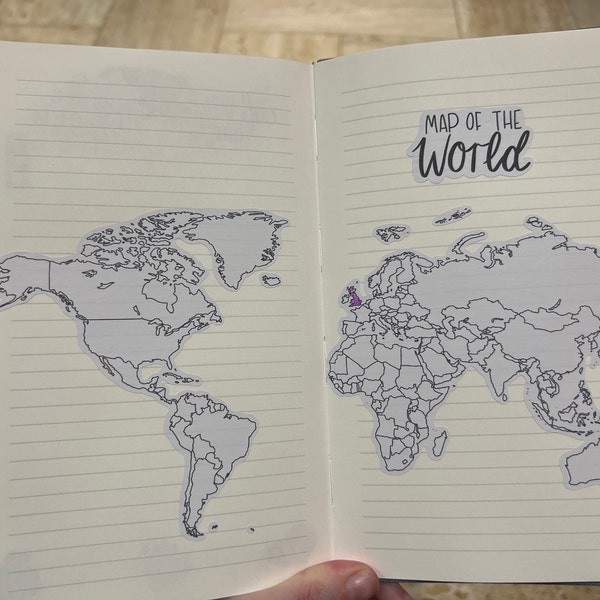 MAP OF THE
World